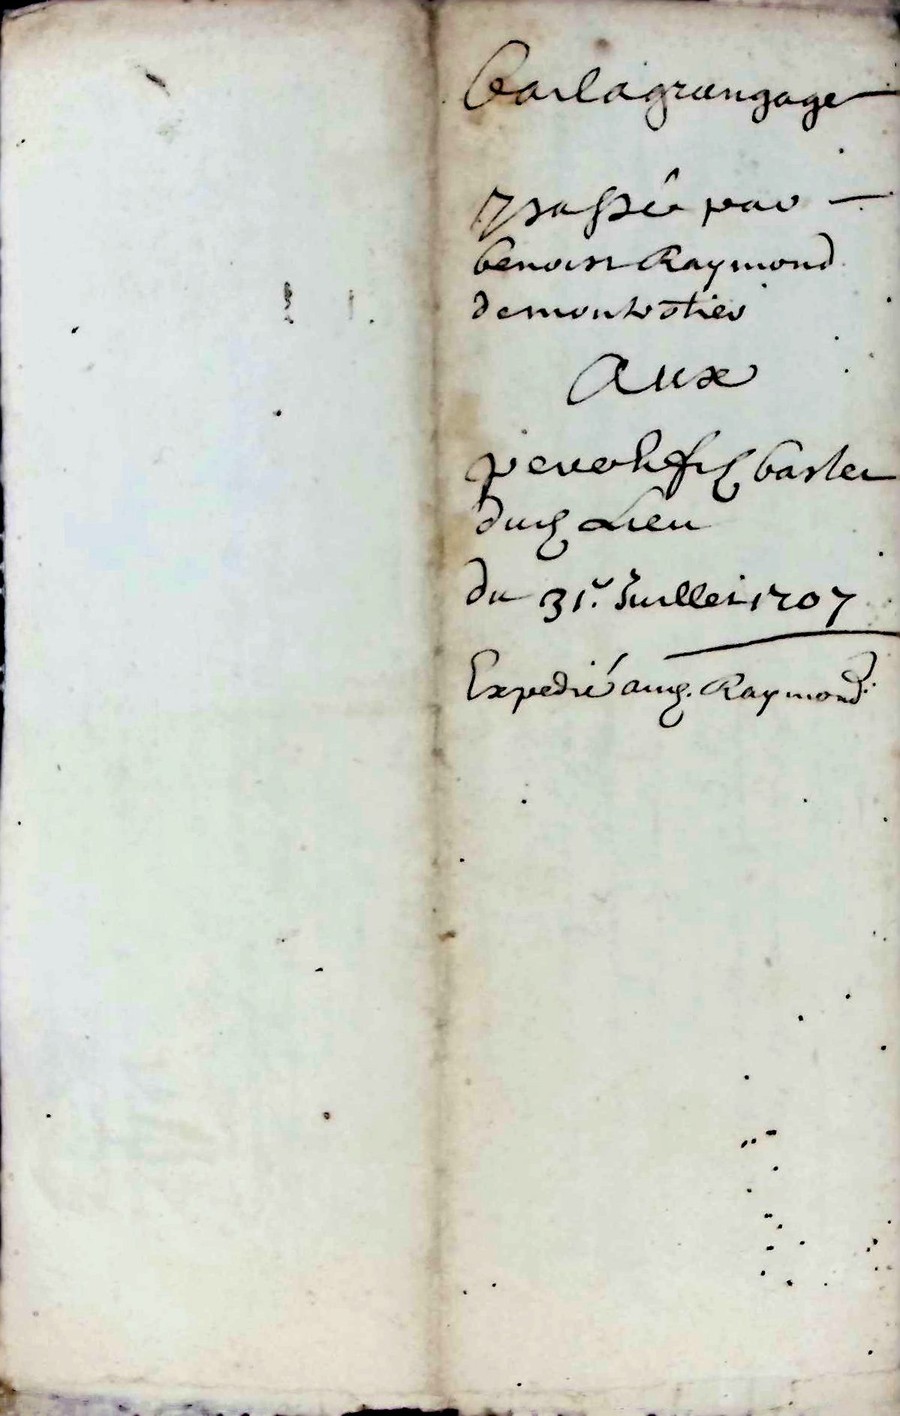 Bail a grangage
passé par
benoist Raymond
de montrotier
Aux
bastier
dud Lieu
du 31e Juillet 1707
Expedié aud. Raymond